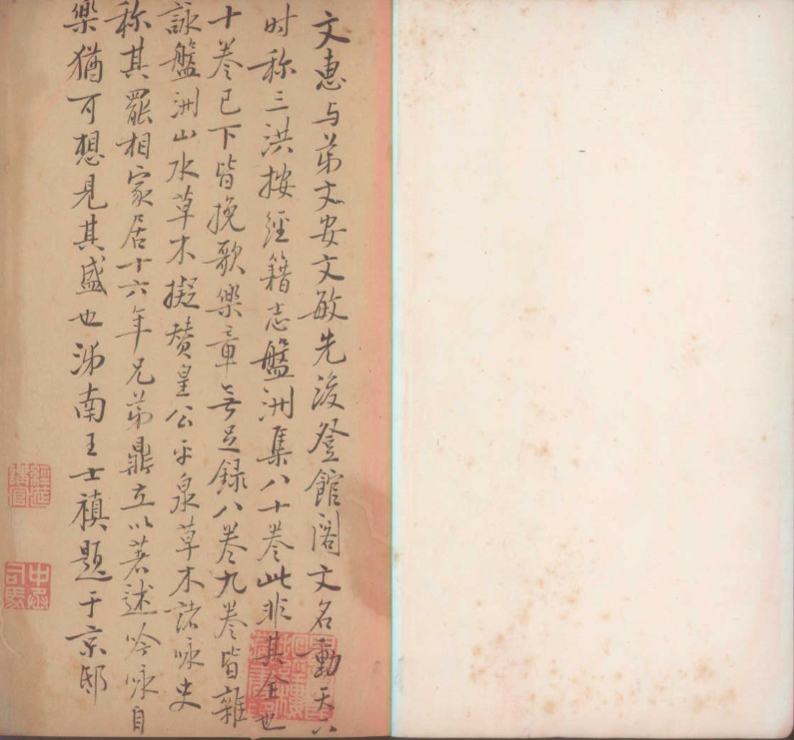 文惠与弟文安文敏先後登館閣文名動天下
时称三洪按經籍志盤洲集八十卷此非其全也
十卷已下皆挽歌樂章無足録八卷九卷皆雜
詠盤洲山水草木擬賛皇公平泉草木諸咏史
称其罷相家居十六年兄弟鼎立以著述吟咏自
樂猶可想見其盛也济南王士禛題于京邸
經筵講官